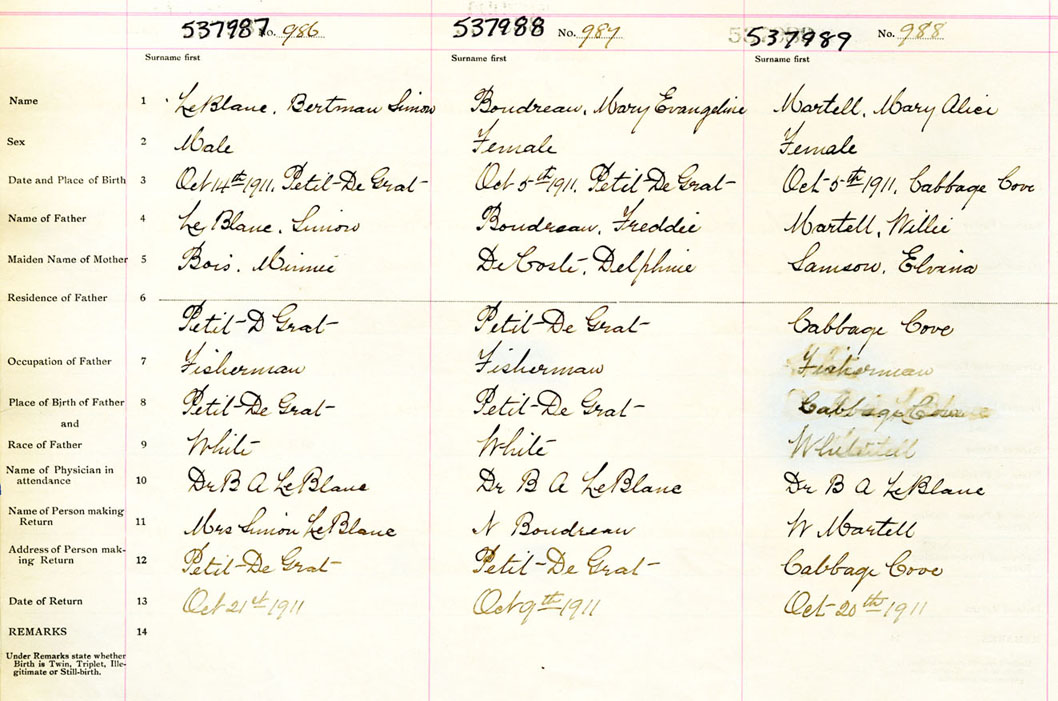 537987 No. 986 537988 No. 987 537989 No. 988
Surname first Surname first Surname first
Name 1 LeBlanc, Bertman Simon Boudreau, Mary Evangeline Martell, Mary Alice
Sex 2 Male Female Female
Date and Place of Birth 3 Oct 14th 1911, Petit-De Grat Oct 5th 1911, Petit-De Grat Oct 5th 1911, Cabbage Cove
Name of Father 4 Le Blanc, Simon Boudreau, Freddie Martell, Willie
Maiden Name of Mother 5 Bois, Minnie DeCoste, Delphine Samson, Elvina
Residence of Father 6
Petit-D Grat Petit-De Grat Cabbage Cove
Occupation of Father 7 Fisherman Fisherman Fisherman
Place of Birth of Father 8 Petit-De Grat Petit-De Grat Cabbage Cove
and
Race of Father 9 White White White
Name of Physician in
attendance 10 Dr B A LeBlanc Dr B A LeBlanc Dr B A LeBlanc
Name of Person making
Return 11 Mrs Simon LeBlanc N Boudreau W Martell
Address of Person mak-
ing Return 12 Petit-De Grat Petit-De Grat Cabbage Cove
Date of Return 13 Oct 21st 1911 Oct 9th 1911 Oct 20th 1911
REMARKS 14
Under Remarks state whether
Birth is Twin, Triplet, Ille-
gitimate or Still-birth.